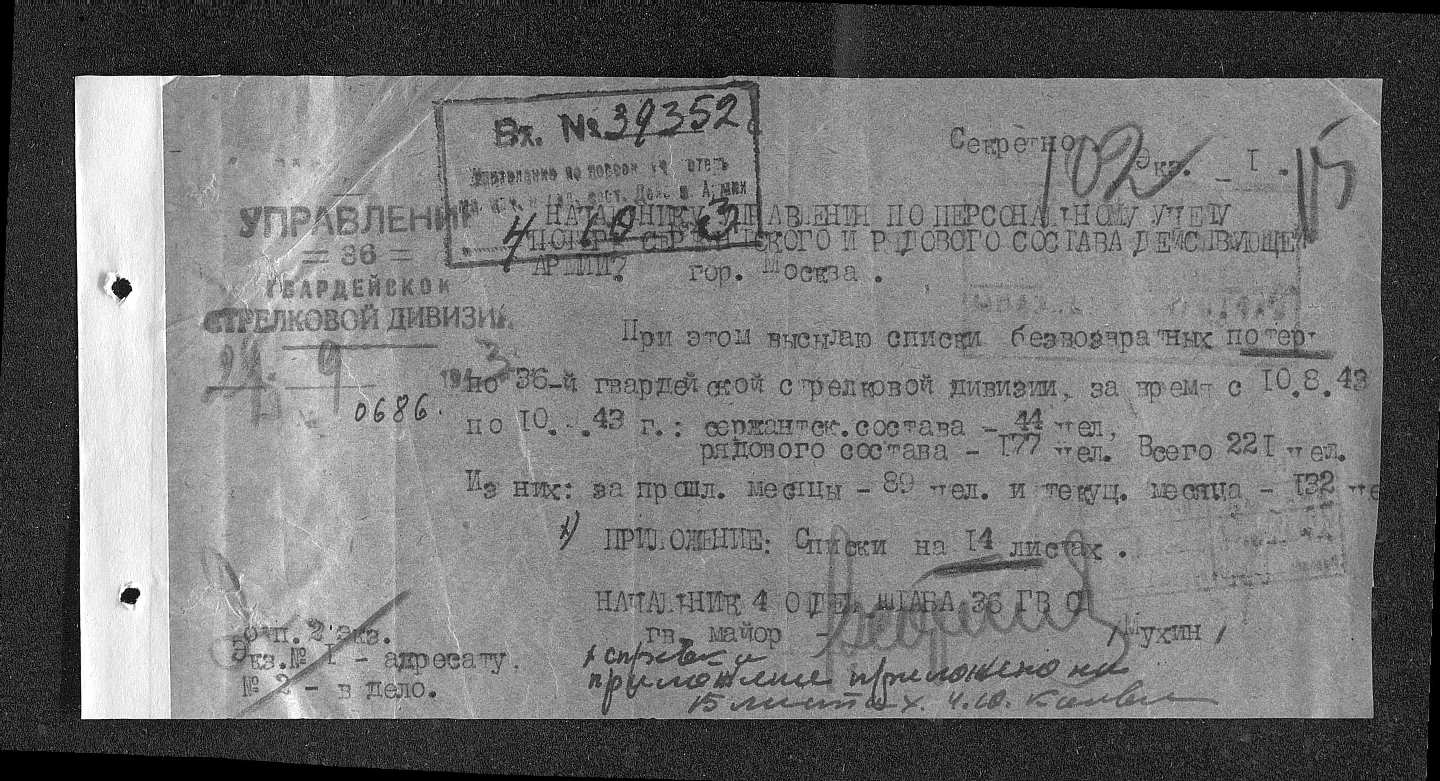 Вх. № 39352
4 10 3
Секретно
Экз. - I.
102
115
УПРАВЛЕНИЕ
= 36 =
ГВАРДЕЙСКОЙ
СТРЕЛКОВОЙ ДИВИЗИИ
9 1943
0686.
НАЧАЛЬНИКУ УПРАВЛЕНИЯ ПО ПЕРСОНАЛЬНОМУ УЧЕТУ
ПОТЕРЬ СЕРЖАНТСКОГО И РЯДОВОГО СОСТАВА ДЕЙСТВУЮЩЕЙ
АРМИИ гор. Москва.
При этом высылаю списки безвозвратных потерь
по 36-й гвардейской стрелковой дивизии, за время с 10.8.43
по 10. .43 г.: сержантск.состава - 44 чел,
рядового состава - 177 чел. Всего 221 чел.
Из них: за прошл. месяцы - 89 чел. и текущ. месяца - 132 че
х) ПРИЛОЖЕНИЕ: Списки на 14 листах.
НАЧАЛЬНИК 4 ОТДЕЛ. ШТАБА 36 ГВ С
гв. майор - /Мухин/
отп. 2 экз.
Экз.№ I - адресату.
№ 2 - в дело.
х справка
приложение приложено на
15 листах. 4.10.